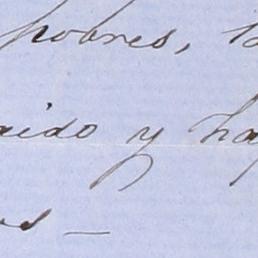 pobres,
aido y ha
es —